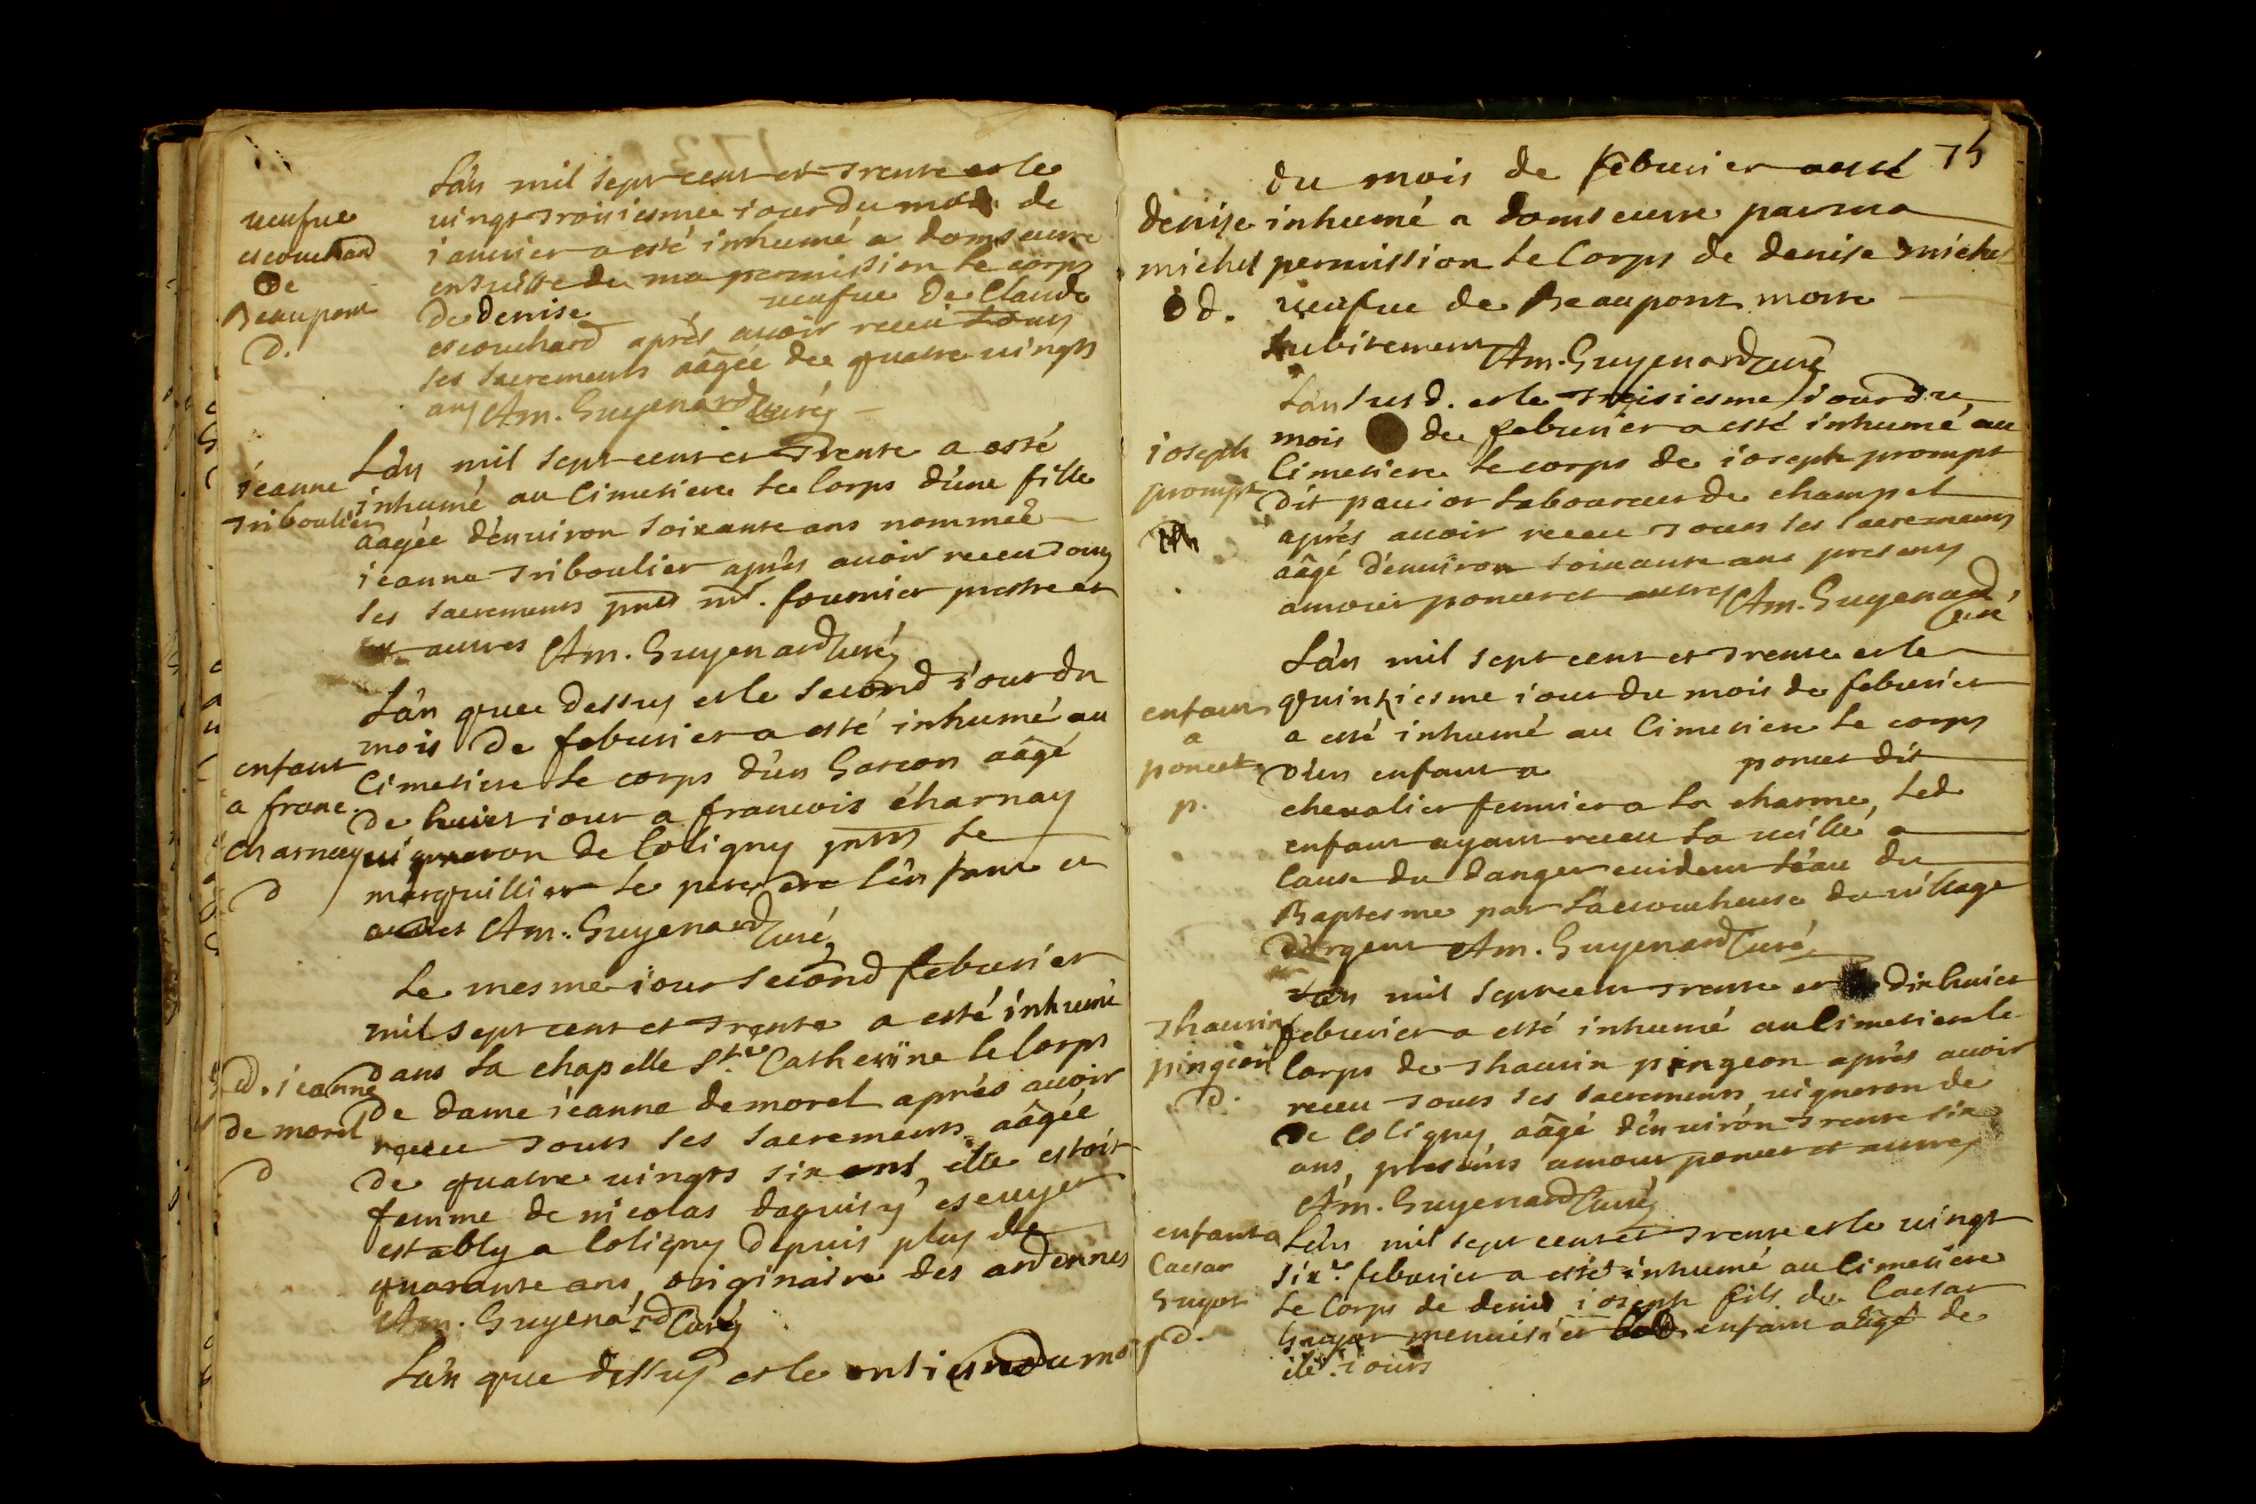 L'an mil sept cent et trente et le
veufve
vingt troisiesme iour du mois de
escouchard
ianvier a esté inhumé a domseure
de
ensuitte de ma permission le corps
Beaupont
de denise veufve de Claude
d.
escouchard aprés avoir receu tous
les sacrements aâgée de quatre vingts
ans Am. Guyenard Curé
L'an mil sept cent et trente a esté
ieanne
inhumé au Cimetiere le Corps d'une fille
triboulier
aagée d'environ soixante ans nommeé
ieanne triboulier aprés avoir receu tous
les sacrements pnts mr. fournier prestre et
autres Am. Guyenard Curé
L'an que dessus et le second iour du
mois de febvrier a esté inhumé au
enfant
Cimetiere le corps d'un Garcon aâgé
a franc.
de huict iour a francois charnay
charnay
vigneron de Coligny pnts le
d
marguillier le pere de l'enfant et
autres Am. Guyenard Curé
Le mesme iour second febvrier
mil sept cent et trente a esté inhumé
dans la chapelle Ste Catherine le Corps
d. ieanne
de dame ieanne de morel aprés avoir
de morel
receu tous les sacrements aâgée
d
de quatre vingts six ans, elle estoit
femme de nicolas daguisy escuyer
estably a Coligny depuis plus de
quarante ans, originaire des ardennes
Am. Guyenard Curé
L'an que dessus et le onziesme du mo
75
du mois de febvrier a esté
denise
inhumé a domseure par ma
michel
permission le Corps de denise michel
d.
veufve de Beaupont morte
subitement Am. Guyenard Curé
L'an susd. et le treisiesme iour du
mois de febvrier a esté inhumé au
ioseph
Cimetiere le corps de ioseph prompt
prompt
dit laboureur de champel
aprés avoir receu tous les sacrements
aâgé d'environ soixante ans presens
amour poncet et autres Am. Guyenard
Curé
L'an mil sept cent et trente et le
quinziesme iour du mois de febvrier
enfant
a esté inhumé au Cimetiere le corps
a
d'un enfant a poncet dit
poncet
chevalier fermier a la charme, led
p.
enfant ayant receu la veille a
Cause du danger evident l'eau du
Baptesme par l'accoucheuse du village
d'argent Am. Guyenard Curé
L'an mil sept cent trente et dixhuict
thaurin
febvrier a esté inhumé au Cimetiere le
pingeon
Corps de thaurin pingeon aprés avoir
d.
receu tous les sacrements vigneron de
de Coligny, aâgé d'environ trente six
ans, presents amour poncet et autres
Am. Guyenard Curé
enfant a
L'an mil sept cent et trente et le vingt
Caesar
sixe. febvrier a esté inhumé au Cimetiere
Guyot
le Corps de denis ioseph fils de Caesar
d.
Guyot menuisier enfant aâgé de
iours